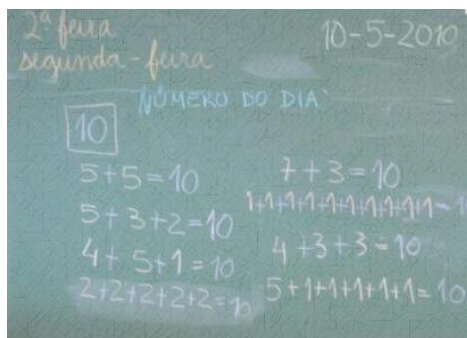 2ª feira
segunda-feira
10-5-2010
NÚMERO DO DIA
10
5+5=10
5+3+2=10
4+5+1=10
2+2+2+2+2=10
7+3=10
1+1+1+1+1+1+1+1+1+1=1
4+3+3=10
5+1+1+1+1+1=10